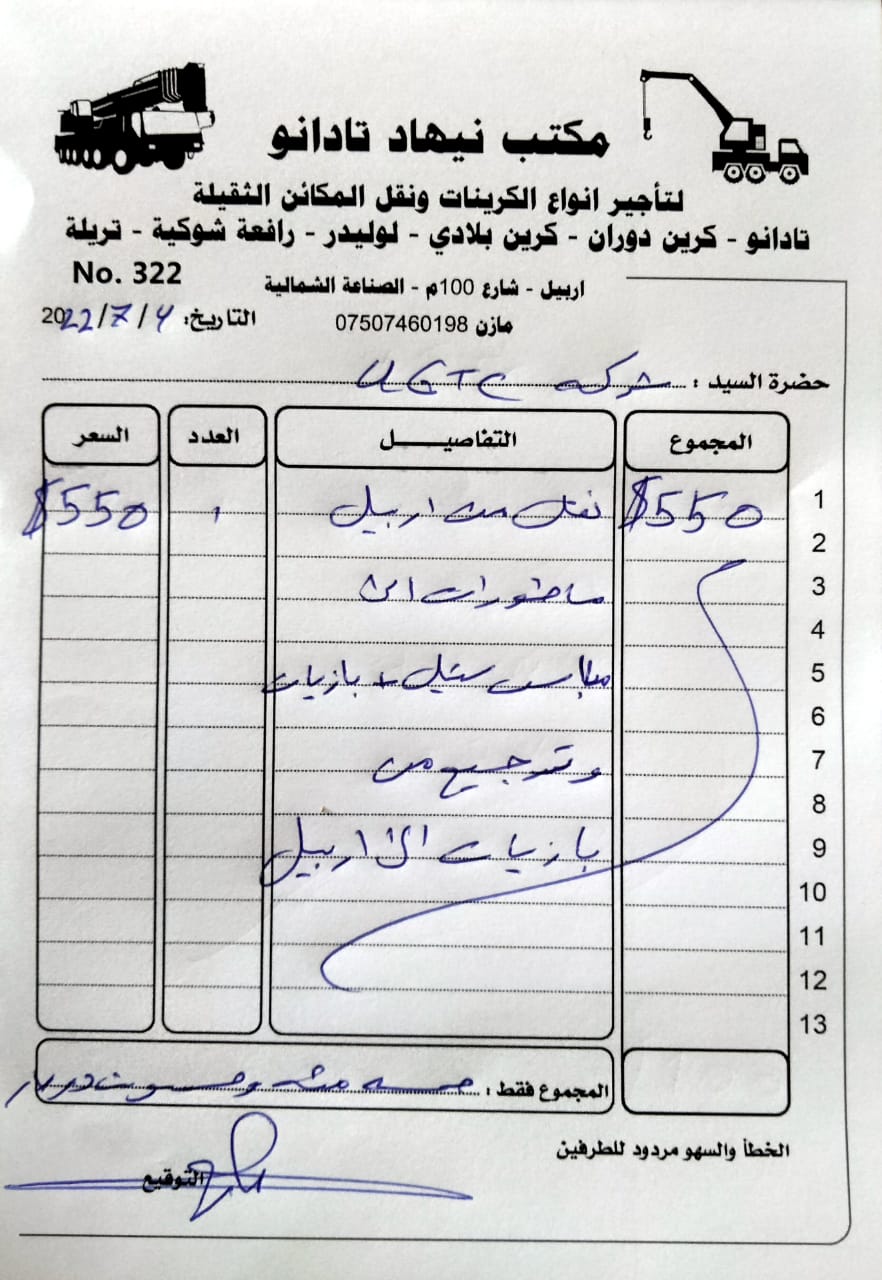 مكتب نيهاد تادانو
لتأجير انواع الكرينات ونقل المكائن الثقيلة
تادانو - كرين دوران - كرين بلادي - لوليدر - رافعة شوكية - تريلة
No. 322
اربيل - شارع 100م - الصناعة الشمالية
التاريخ: 2022/7/4
مازن 07507460198
حضرة السيد : شركه UGTC
المجموع التفاصيل العدد السعر
1 $550 نقل من اربيل 1 $550
2
3 ماطورات الى
4
5 ستيل + بازيات
6
7 وترجيع من
8
9 بازيات الى اربيل
10
11
12
13
المجموع فقط : خمسه مئه وخمسون دولار
الخطأ والسهو مردود للطرفين
التوقيع